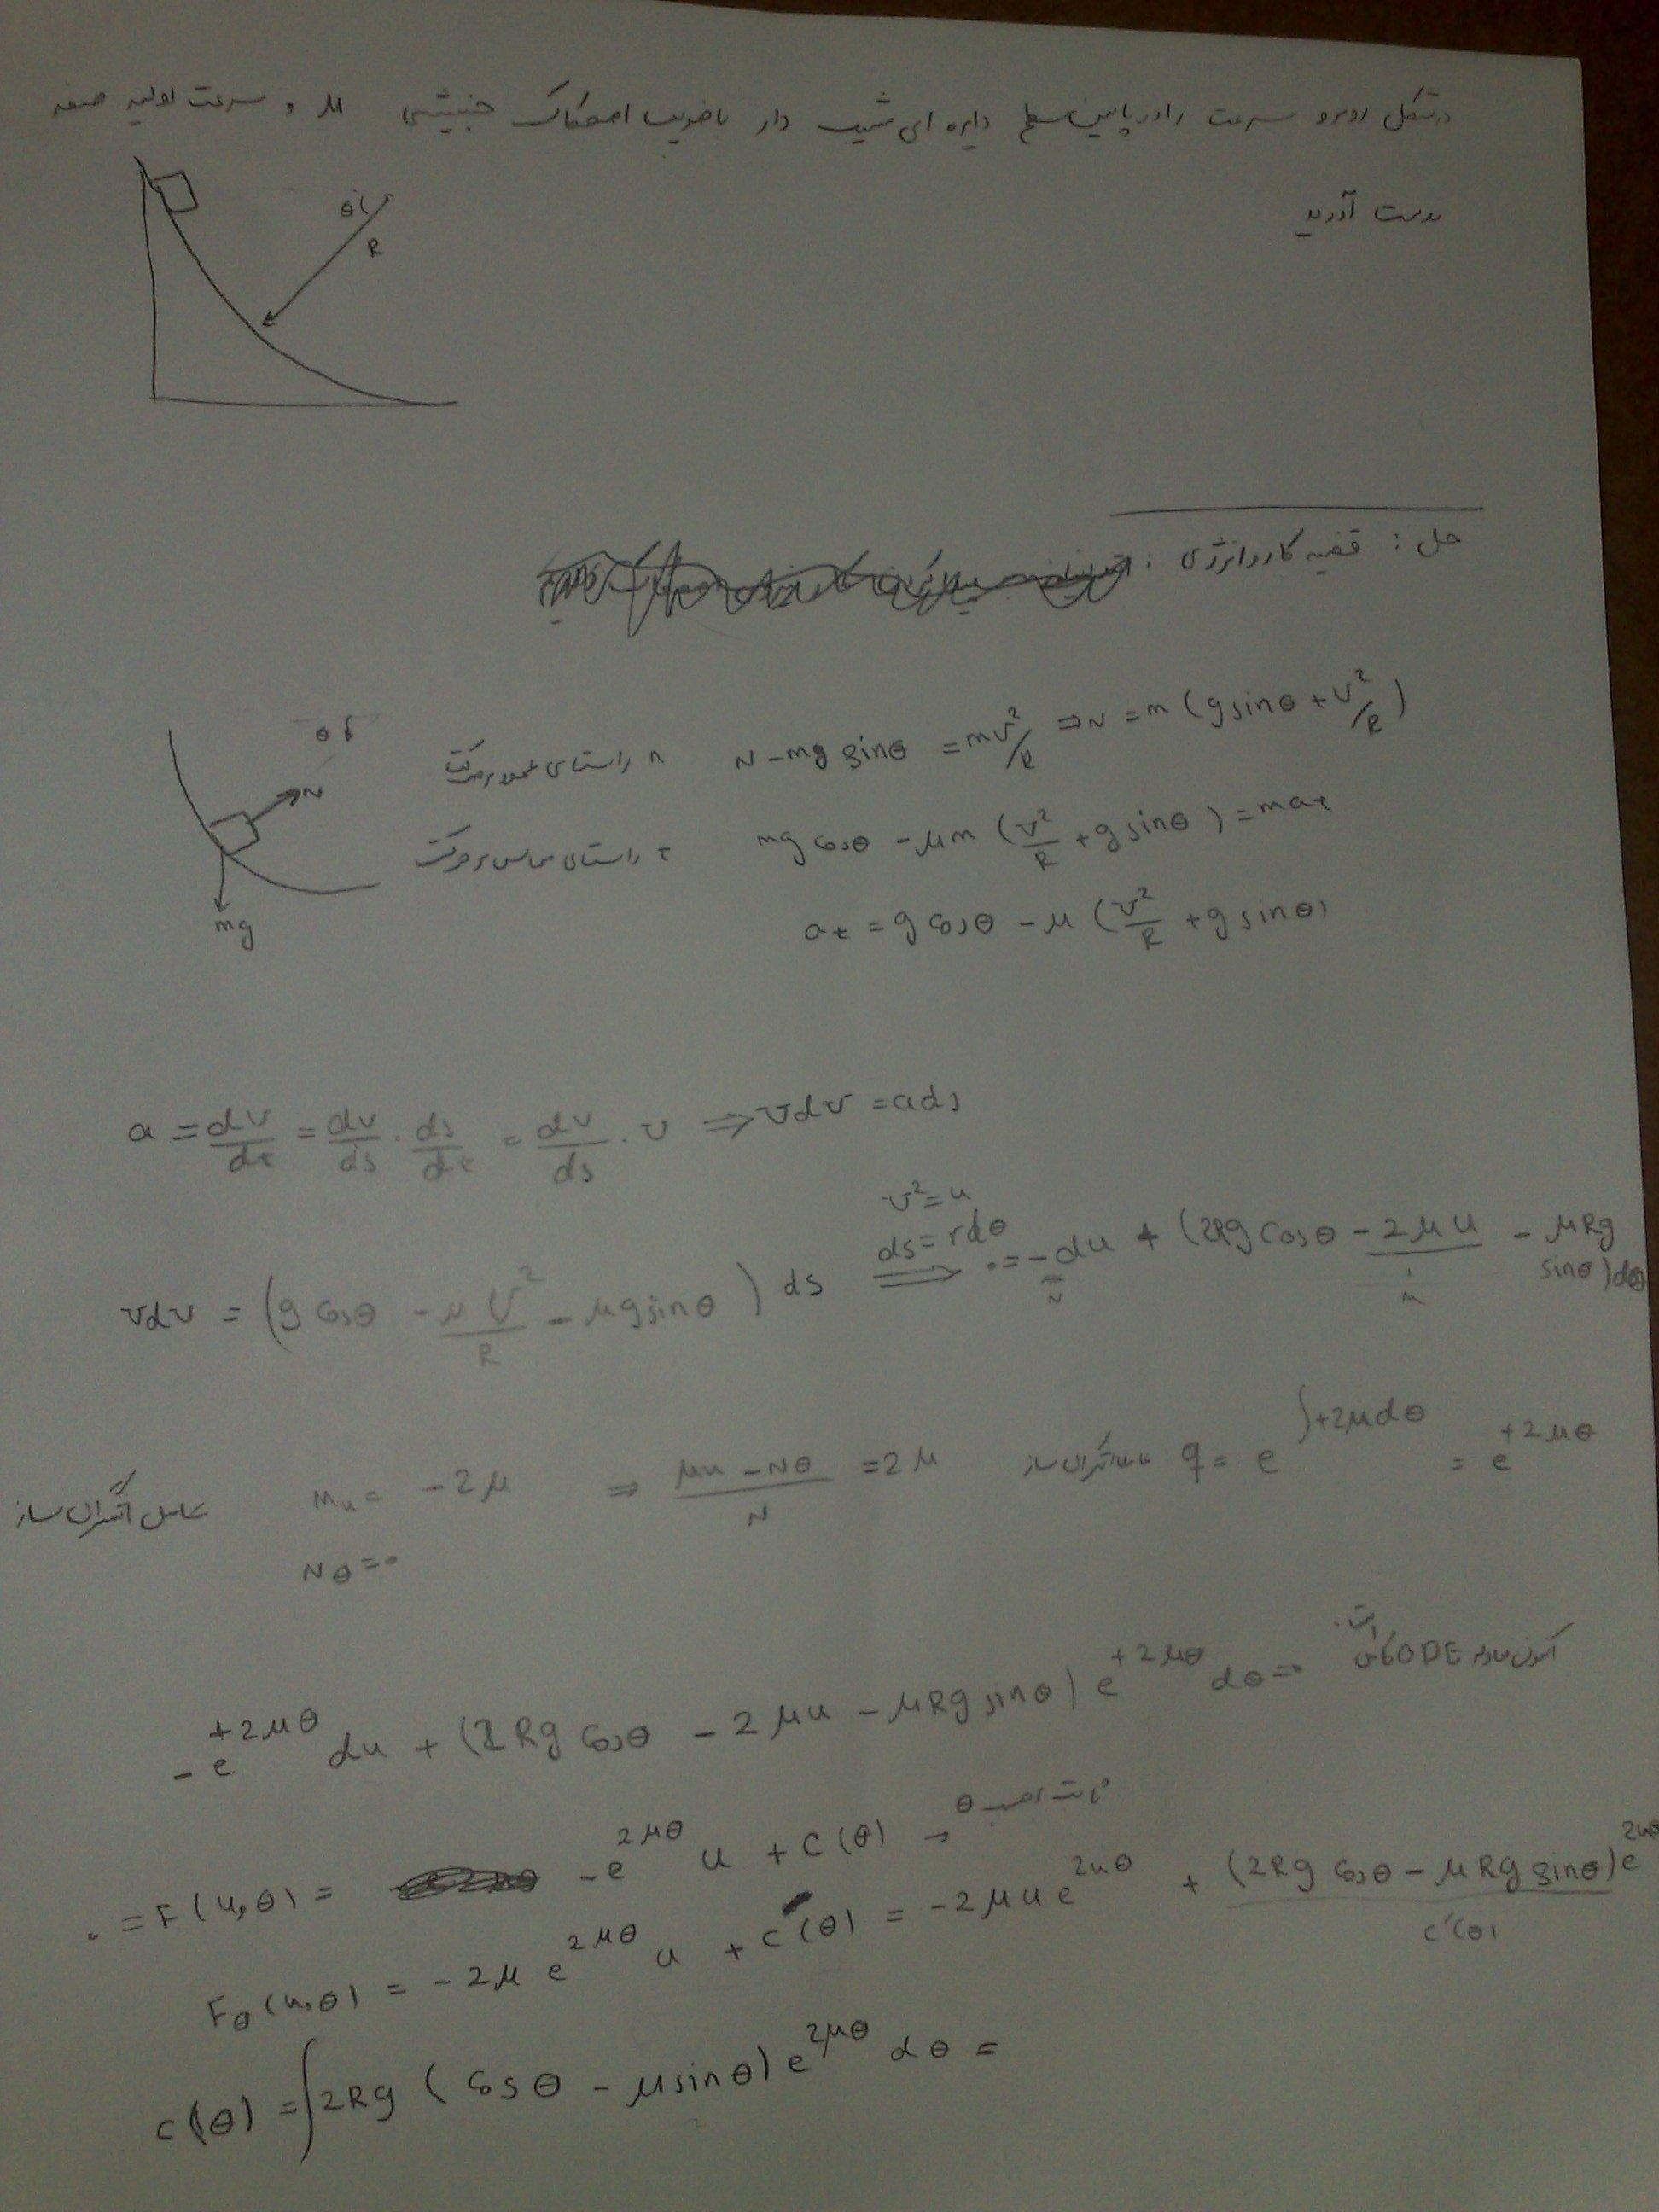 در شکل روبرو سرعت را در پایین سطح دایره ای شیب دار با ضریب اصطکاک جنبشی μ و سرعت اولیه صفر
بدست آورید
θ
R
حل : قضیه کار و انرژی :
θ
N
mg
n راستای عمود بر حرکت N - mg sinθ = mv²/R ⇒ N = m (g sinθ + v²/R)
t راستای مماس بر حرکت mg cosθ - μm (v²/R + g sinθ) = mat
at = g cosθ - μ (v²/R + g sinθ)
a = dv/dt = dv/ds . ds/dt = dv/ds . v ⇒ vdv = ads
v² = u
ds = rdθ
vdv = (g cosθ - μv²/R - μg sinθ) ds ⟹ 0 = -du + (2Rg cosθ - 2μu - μRg sinθ) dθ
N M
عامل انتگرال ساز Mu = -2μ ⇒ (Mu - Nθ)/N = 2μ عامل انتگرال ساز q = e^∫+2μdθ = e^+2μθ
Nθ = 0
-e^+2μθ du + (2Rg cosθ - 2μu - μRg sinθ) e^+2μθ dθ = 0 اکنون معادله ODE کامل است.
0 = F(u,θ) = -e^2μθ u + C(θ) → θ
Fθ(u,θ) = -2μ e^2μθ u + C'(θ) = -2μu e^2uθ + (2Rg cosθ - μRg sinθ) e^2uθ
C'(θ)
C(θ) = ∫2Rg (cosθ - μ sinθ) e^2μθ dθ =